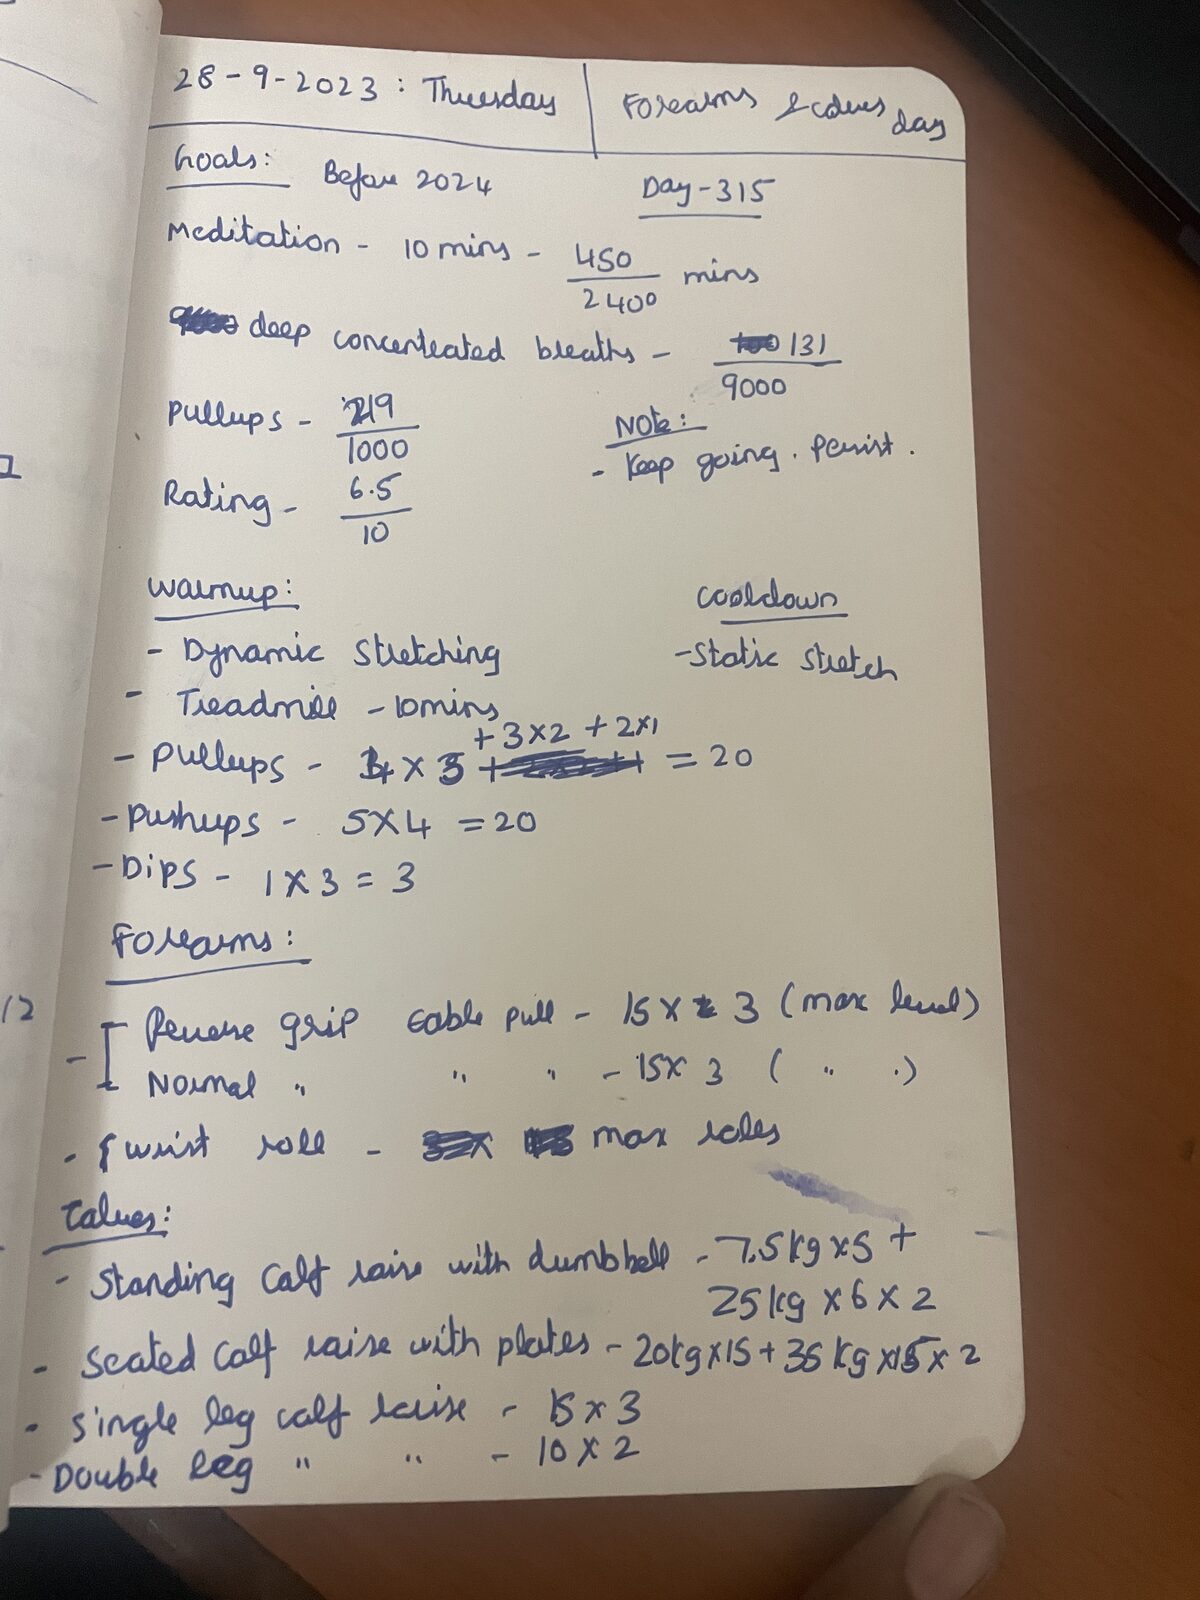 28-9-2023 : Thursday | Forearms & calves day
Goals: Before 2024
Day-315
Meditation - 10 mins - 450/2400 mins
deep concentrated breaths - 131/9000
Pullups - 219/1000
Note:
- Keep going. Persist.
Rating - 6.5/10
Warmup:
- Dynamic Stretching
- Treadmill - 10mins
- Pullups - 4 x 3 + 3x2 + 2x1 = 20
- Pushups - 5x4 = 20
- Dips - 1x3 = 3
Cooldown
- Static stretch
Forearms:
- Reverse grip cable pull - 15 x 3 (max level)
Normal " " " - 15x 3 ( " " )
- wrist roll - max roles
Calves:
- Standing Calf raise with dumbbell - 7.5kg x5 +
25kg x 6 x 2
- Seated Calf raise with plates - 20kgx15 + 35kgx15x2
- Single leg calf raise - 15 x 3
- Double leg " " - 10 x 2
12